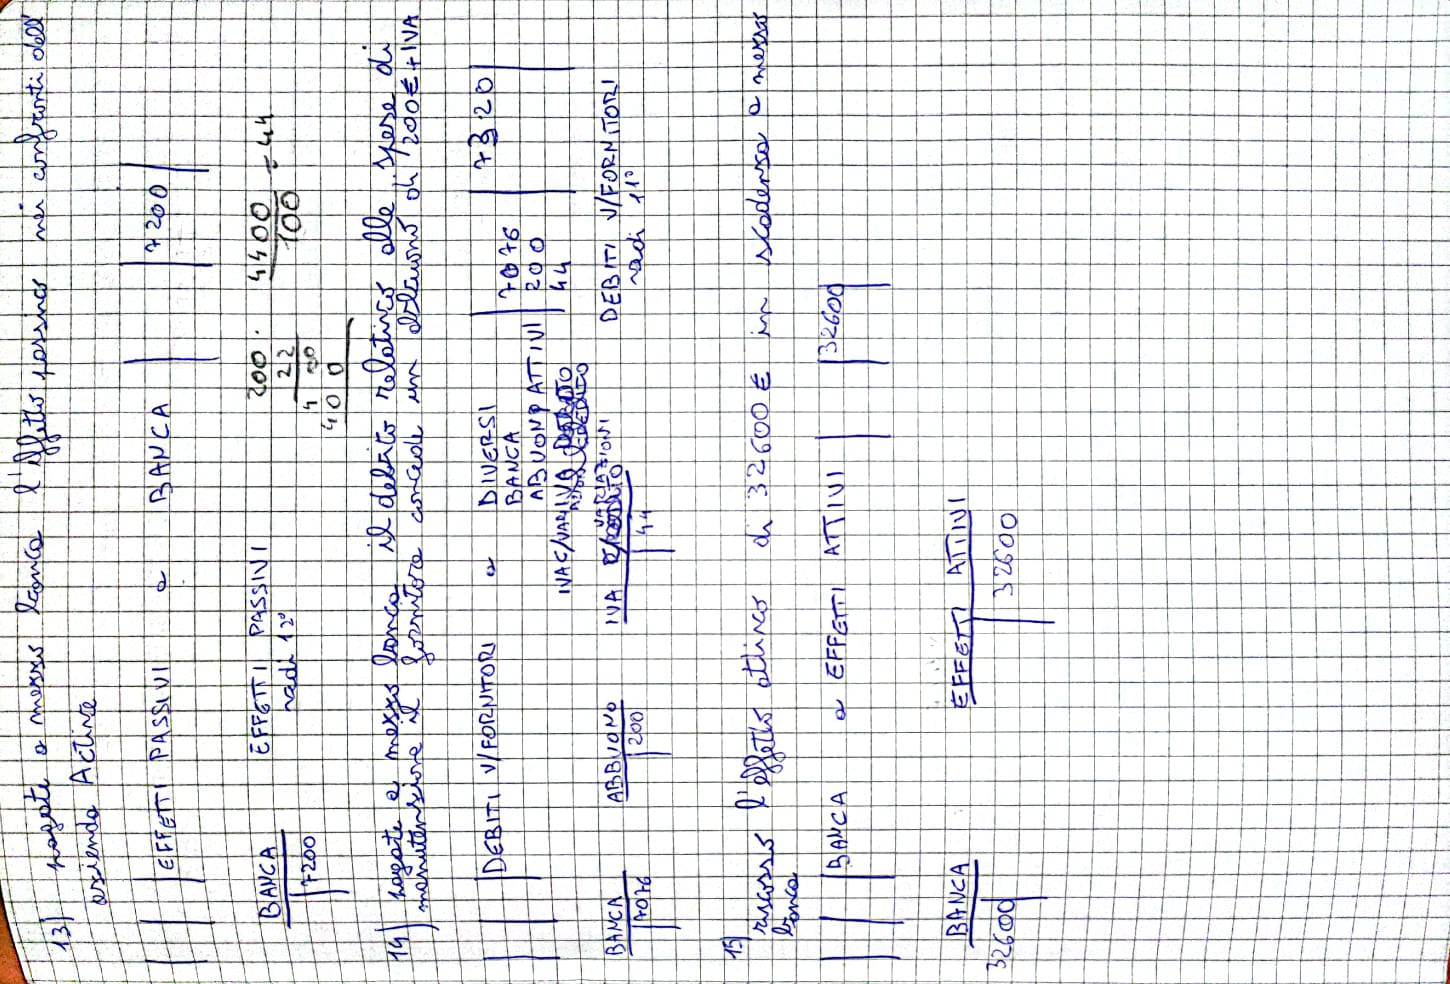 13) pagate a mezzo banca l'effetto passivo nei confronti dell'
azienda Active
EFFETTI PASSIVI a BANCA 7200
BANCA EFFETTI PASSIVI 200· 4400 = 44
7200 vedi 12° 22 100
400
400
14) pagate a mezzo banca il debito relativo alle spese di
manutenzione il fornitore concede un abbuono di 200€+IVA
DEBITI V/FORNITORI a DIVERSI 7320
BANCA 7076
ABUONO ATTIVI 200
IVA 44
BANCA ABBUONO IVA VARIAZIONI DEBITI V/FORNITORI
7076 200 44 vedi 11°
15) riscosso l'effetto attivo di 32600€ in scadenza a mezzo
banca
BANCA a EFFETTI ATTIVI 32600
BANCA EFFETTI ATTIVI
32600 32600